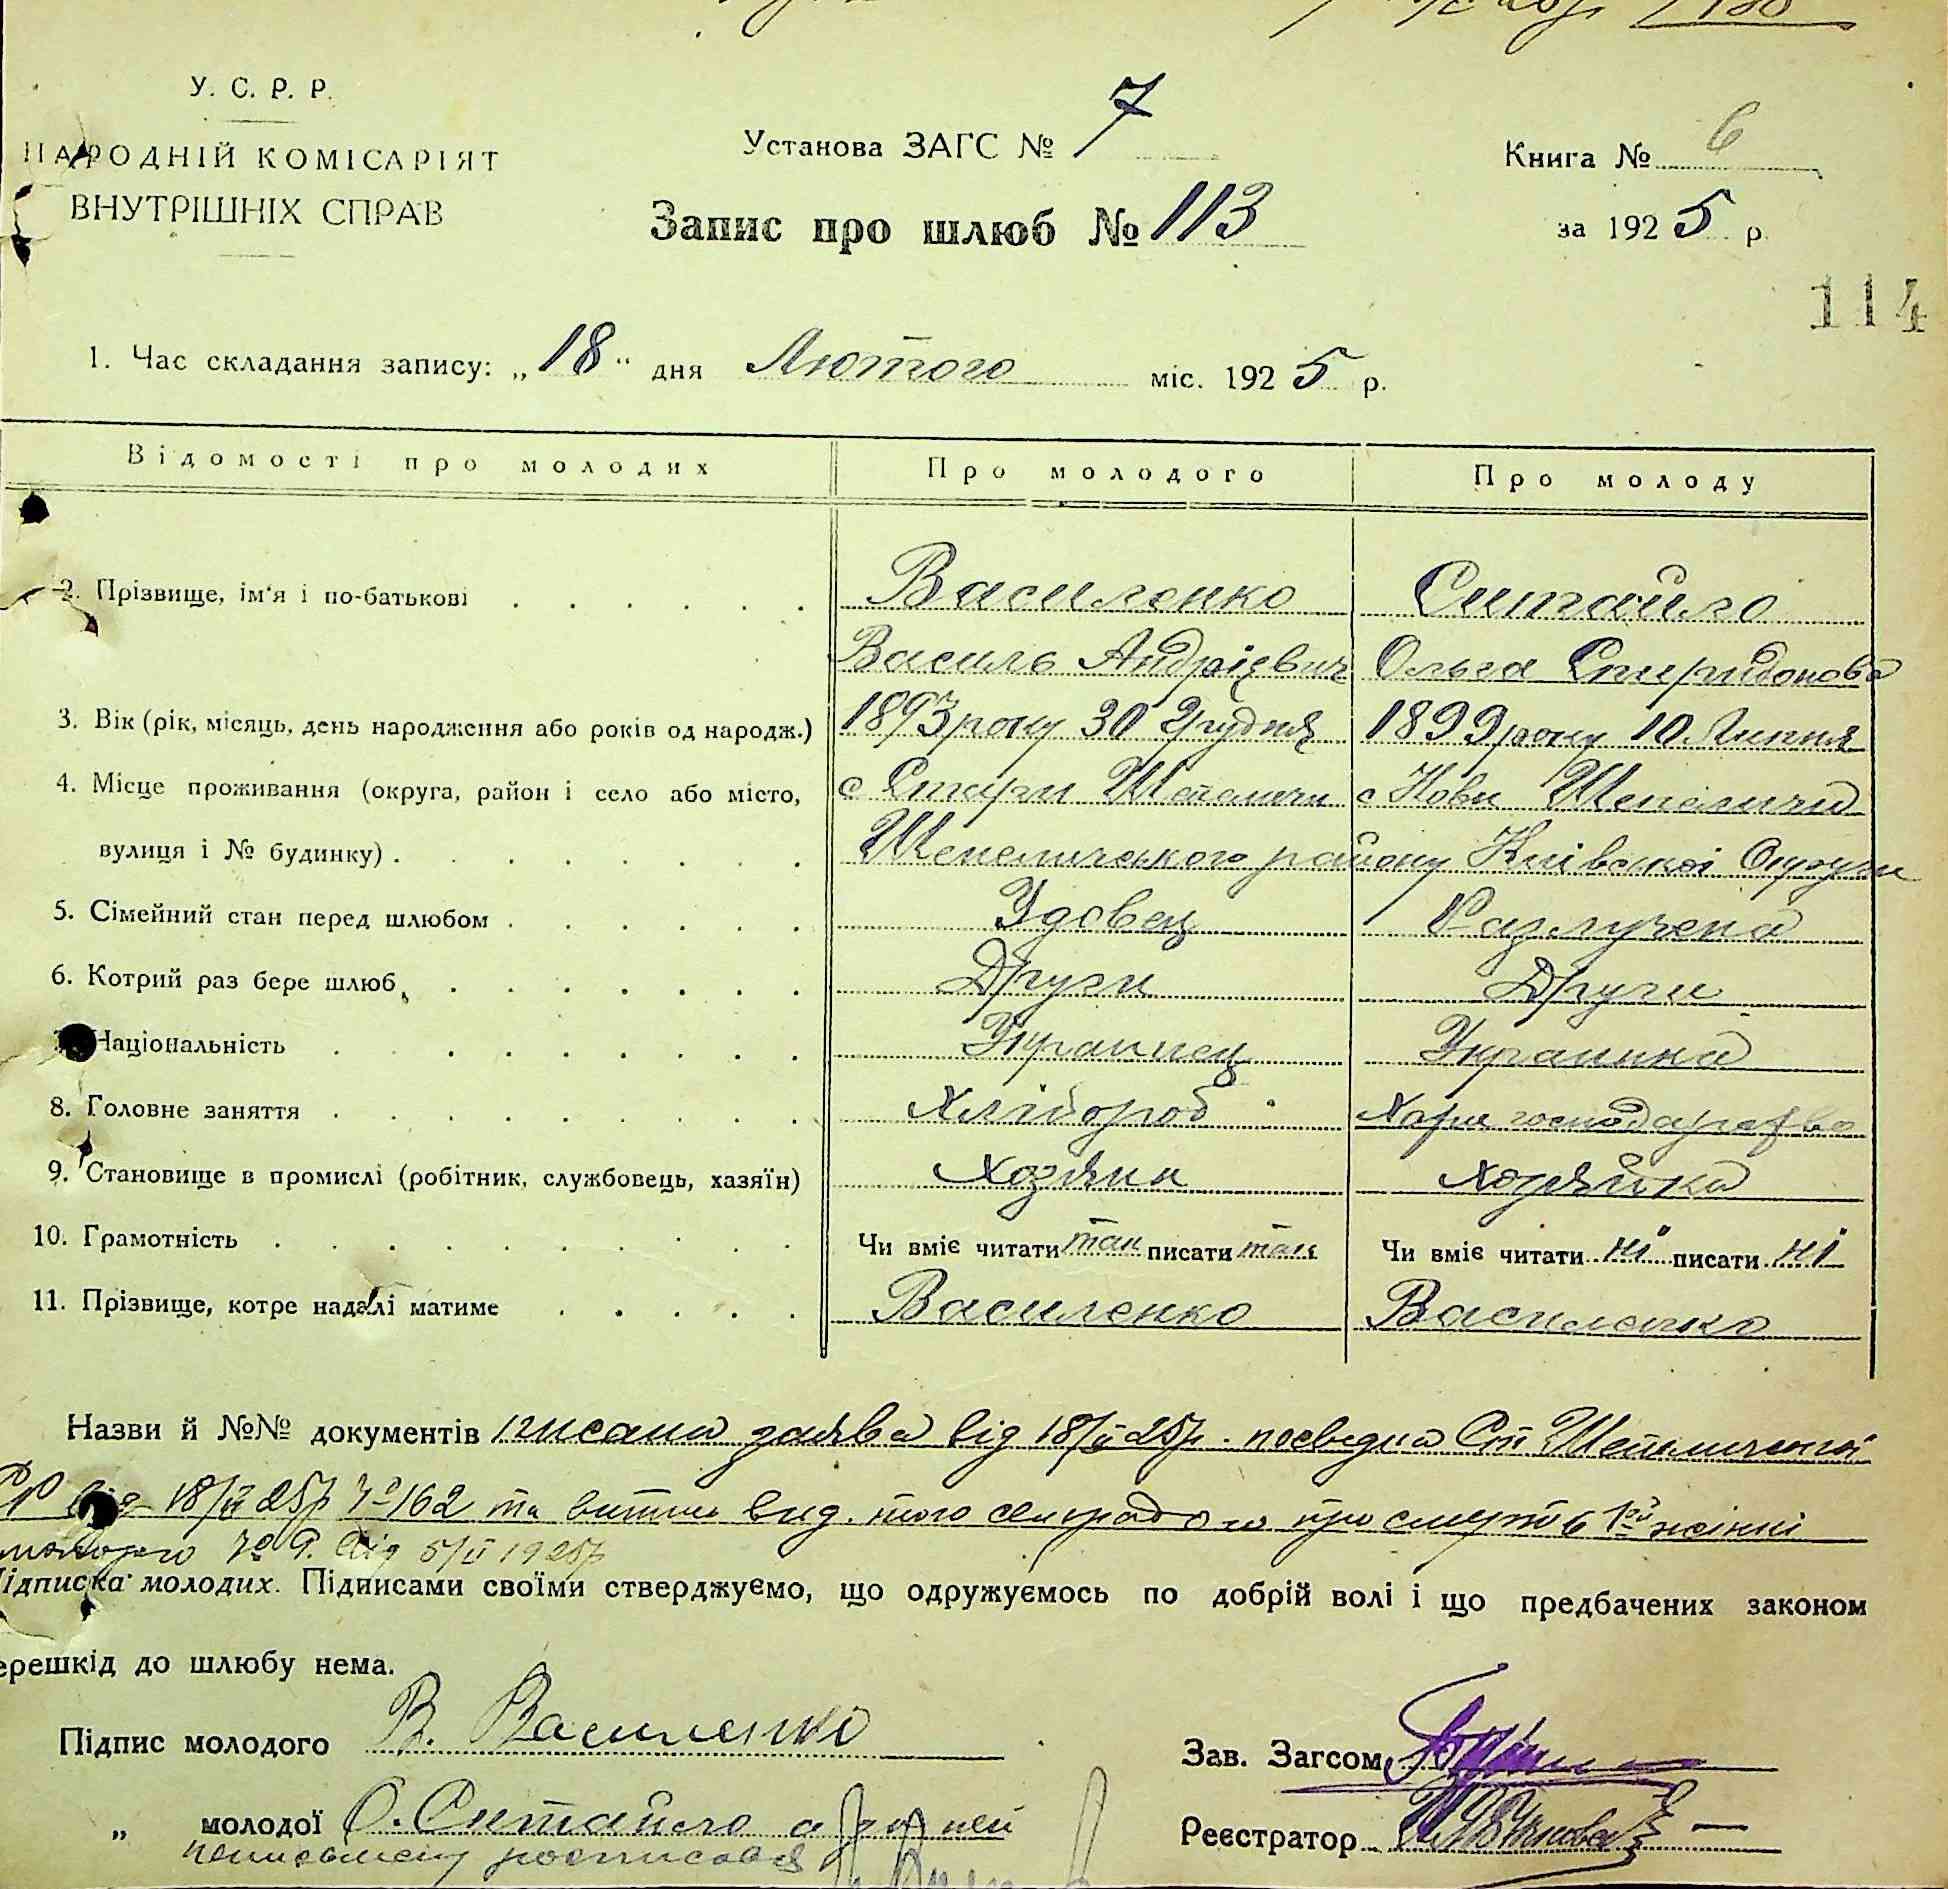 У. С. Р. Р.
НАРОДНІЙ КОМІСАРІЯТ
ВНУТРІШНІХ СПРАВ
Установа ЗАГС № 7
Запис про шлюб № 113
Книга № 6
за 1925 р.
114
1. Час складання запису: „18“ дня Лютого міс. 1925 р.
Відомості про молодих Про молодого Про молоду
2. Прізвище, ім'я і по-батькові Василенко Ситайло
Василь Андрієвич Ольга Спиридонова
3. Вік (рік, місяць, день народження або років од народж.) 1893 року 30 Грудня 1899 року 10 Липня
4. Місце проживання (округа, район і село або місто, с Стари Шепеличи с Нови Шепеличи
вулиця і № будинку) Шепелицького району Київської Округи
5. Сімейний стан перед шлюбом Удовец Разлучена
6. Котрий раз бере шлюб Други Други
7. Національність Украинец Украинка
8. Головне заняття Хлібороб господарство
9. Становище в промислі (робітник, службовець, хазяїн) Хозяин Хозяйка
10. Грамотність Чи вміє читати так писати так Чи вміє читати ні писати ні
11. Прізвище, котре надалі матиме Василенко Василенко
Назви й №№ документів писана заява від 18/II 25р. посведка Ст Шепелицької
від 18/II 25р № 162 та витяг вид. того сельрадою про смерть 1ої жінкі
молодого № 9. від 5/II 1925р
Підписка молодих. Підписами своїми стверджуємо, що одружуємось по добрій волі і що предбачених законом
ерешкід до шлюбу нема.
Підпис молодого В. Василенко
Зав. Загсом
„ молодої О. Ситайло а за ней
неписьмену росписався
Реєстратор